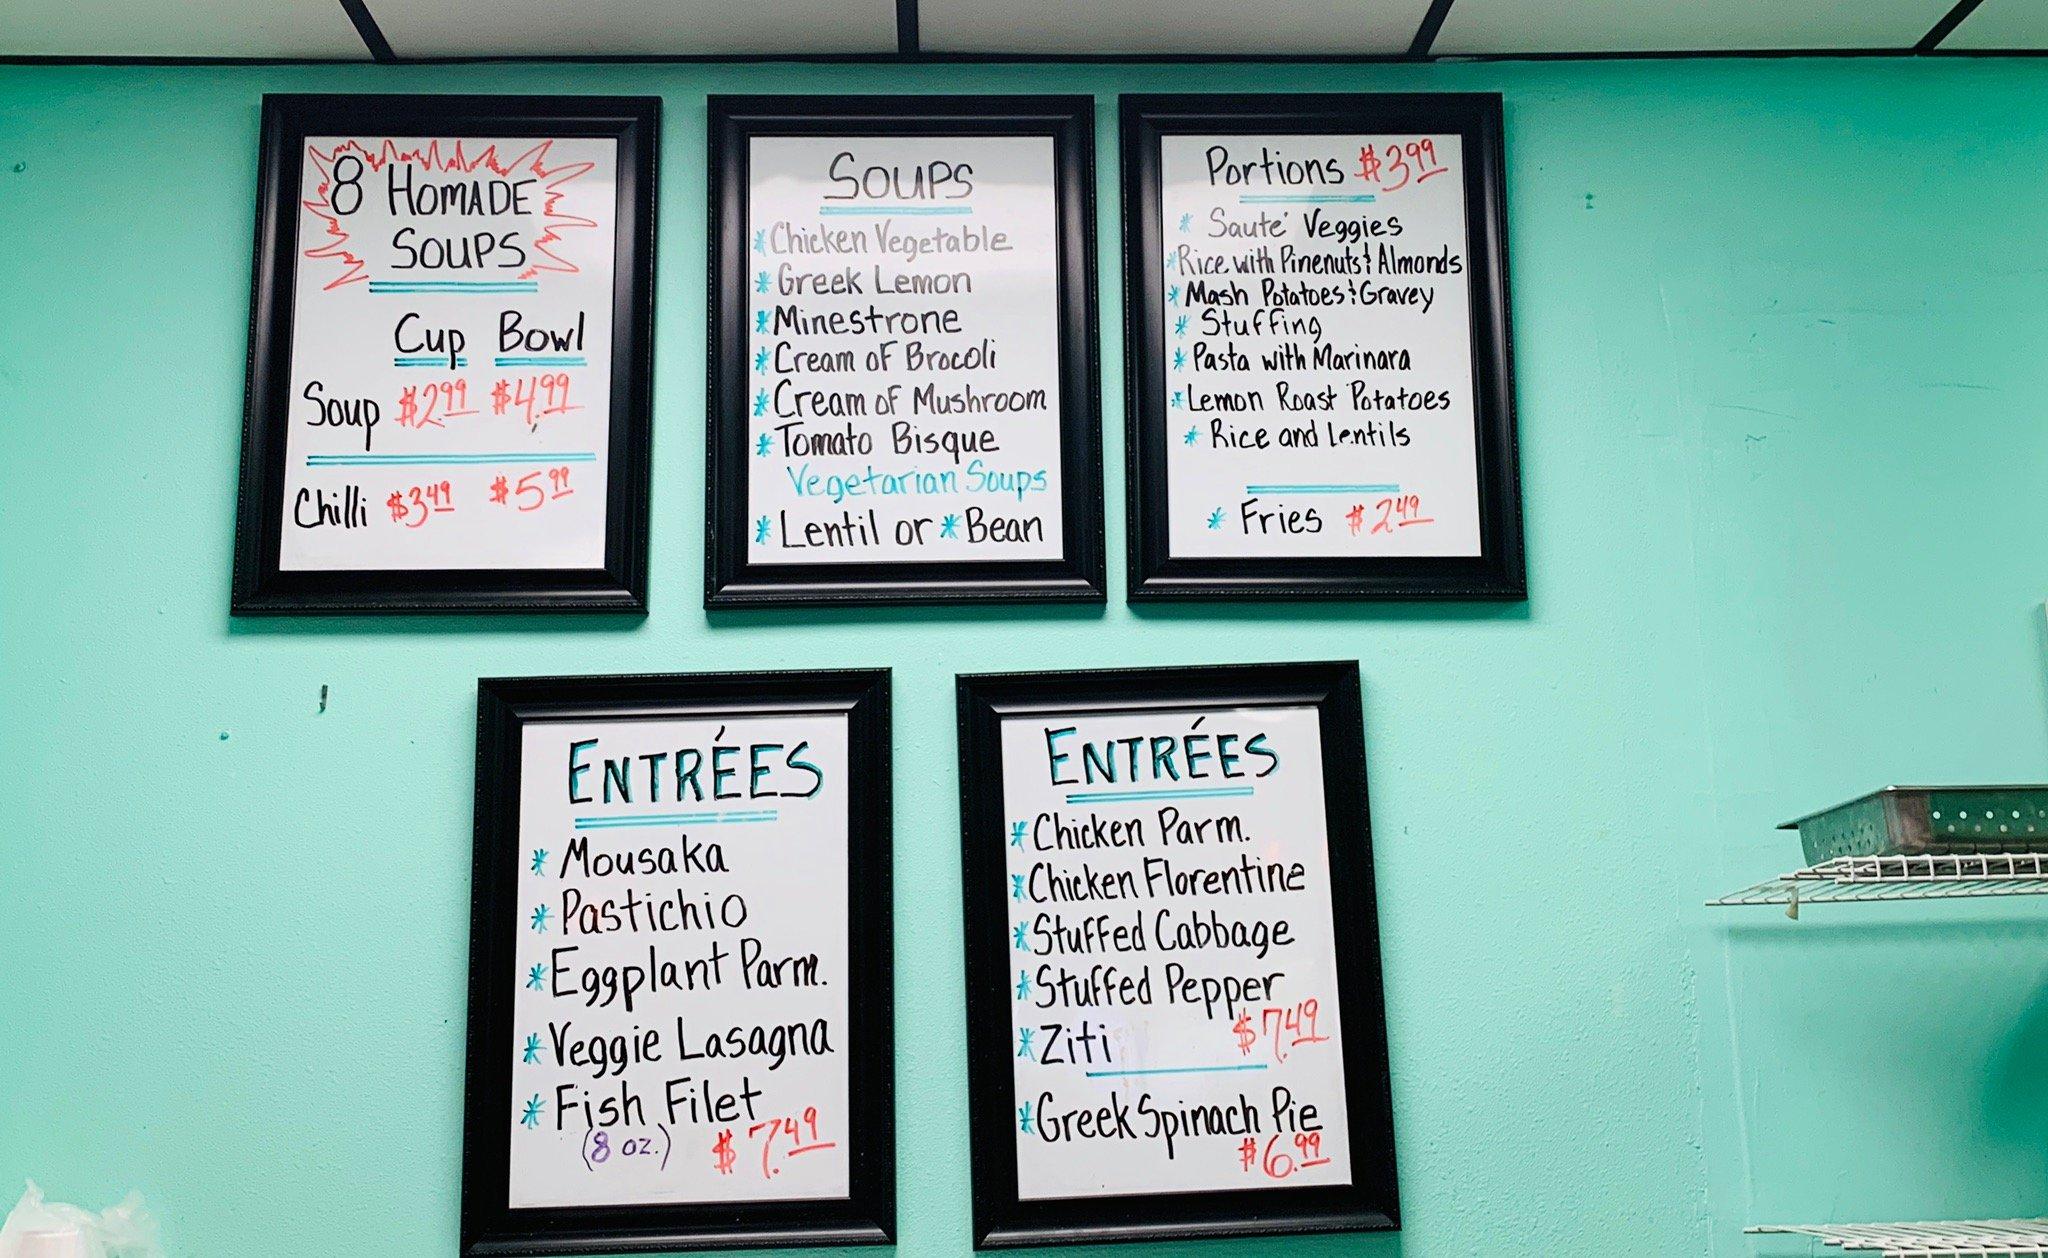 8 HOMADE
SOUPS
Cup Bowl
Soup $2.99 $4.99
Chilli $3.49 $5.99
SOUPS
*Chicken Vegetable
*Greek Lemon
*Minestrone
*Cream of Brocoli
*Cream of Mushroom
*Tomato Bisque
Vegetarian Soups
*Lentil or *Bean
Portions $3.99
* Sauté Veggies
*Rice with Pinenuts & Almonds
*Mash Potatoes & Gravey
* Stuffing
*Pasta with Marinara
*Lemon Roast Potatoes
* Rice and Lentils
* Fries $2.49
ENTRÉES
* Mousaka
*Pastichio
*Eggplant Parm.
*Veggie Lasagna
* Fish Filet
(8 oz.) $7.49
ENTRÉES
*Chicken Parm.
*Chicken Florentine
*Stuffed Cabbage
*Stuffed Pepper
*Ziti $7.49
*Greek Spinach Pie
$6.99